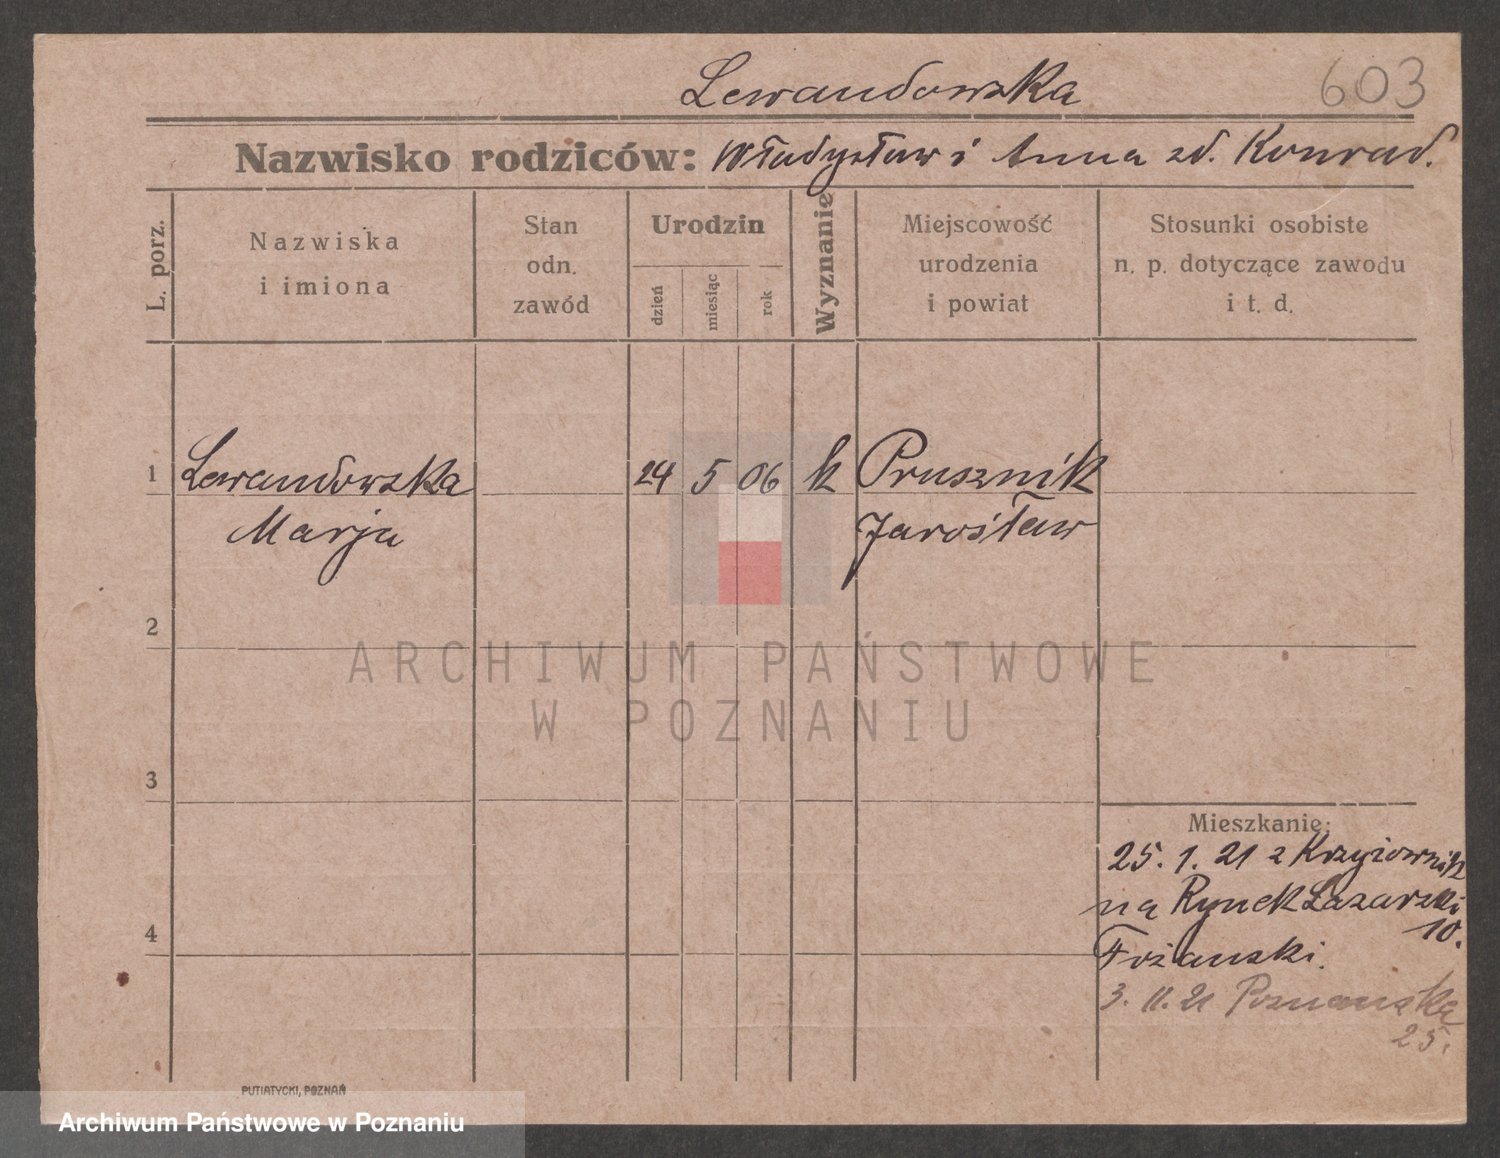 Lewandowska 603
Nazwisko rodziców: Władysław i Anna zd. Konrad.
L. porz.
Nazwiska
i imiona
Stan
odn.
zawód
Urodzin
dzień
miesiąc
rok
Wyznanie
Miejscowość
urodzenia
i powiat
Stosunki osobiste
n. p. dotyczące zawodu
i t. d.
1 Lewandowska 24 5 06 k Prusznik
Marja Jarosław
2
ARCHIWUM PAŃSTWOWE
W POZNANIU
3
Mieszkanie:
25. 1. 21 z
na Rynek Łazarski
10.
4
3. 11. 21 Poznańska
25.
PUTIATYCKI, POZNAŃ
Archiwum Państwowe w Poznaniu